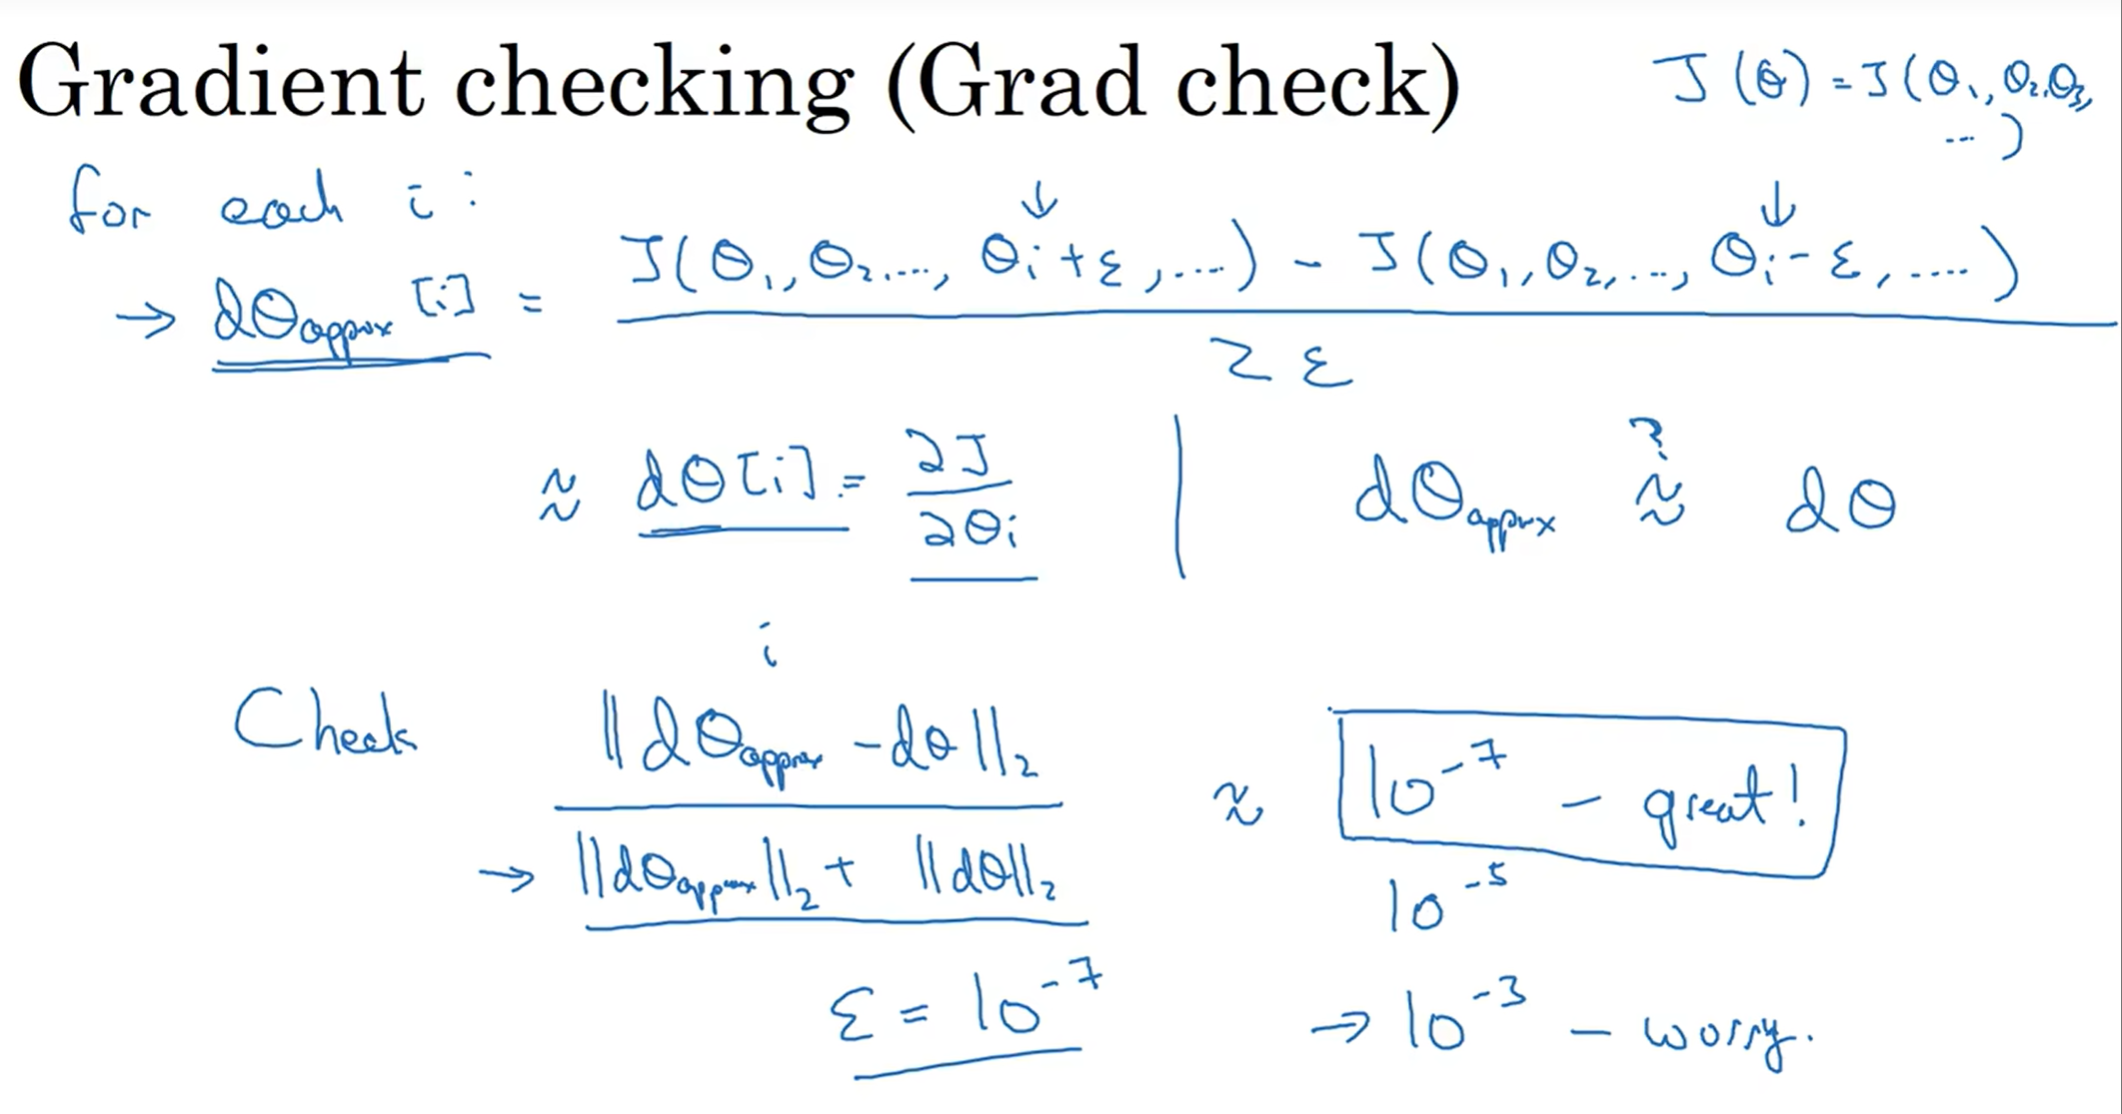 Gradient checking (Grad check)
J(θ) = J(θ₁, θ₂, θ₃, ...)
for each i :
↓ ↓
→ dθapprox [i] = J(θ₁, θ₂, ..., θi + ε, ....) - J(θ₁, θ₂, ..., θi - ε, ....)
2ε
≈ dθ[i] = ∂J / ∂θi | dθapprox ≈? dθ
i
Check ‖dθapprox - dθ‖₂ ≈ 10⁻⁷ - great!
→ ‖dθapprox‖₂ + ‖dθ‖₂ 10⁻⁵
ε = 10⁻⁷ → 10⁻³ - worry.